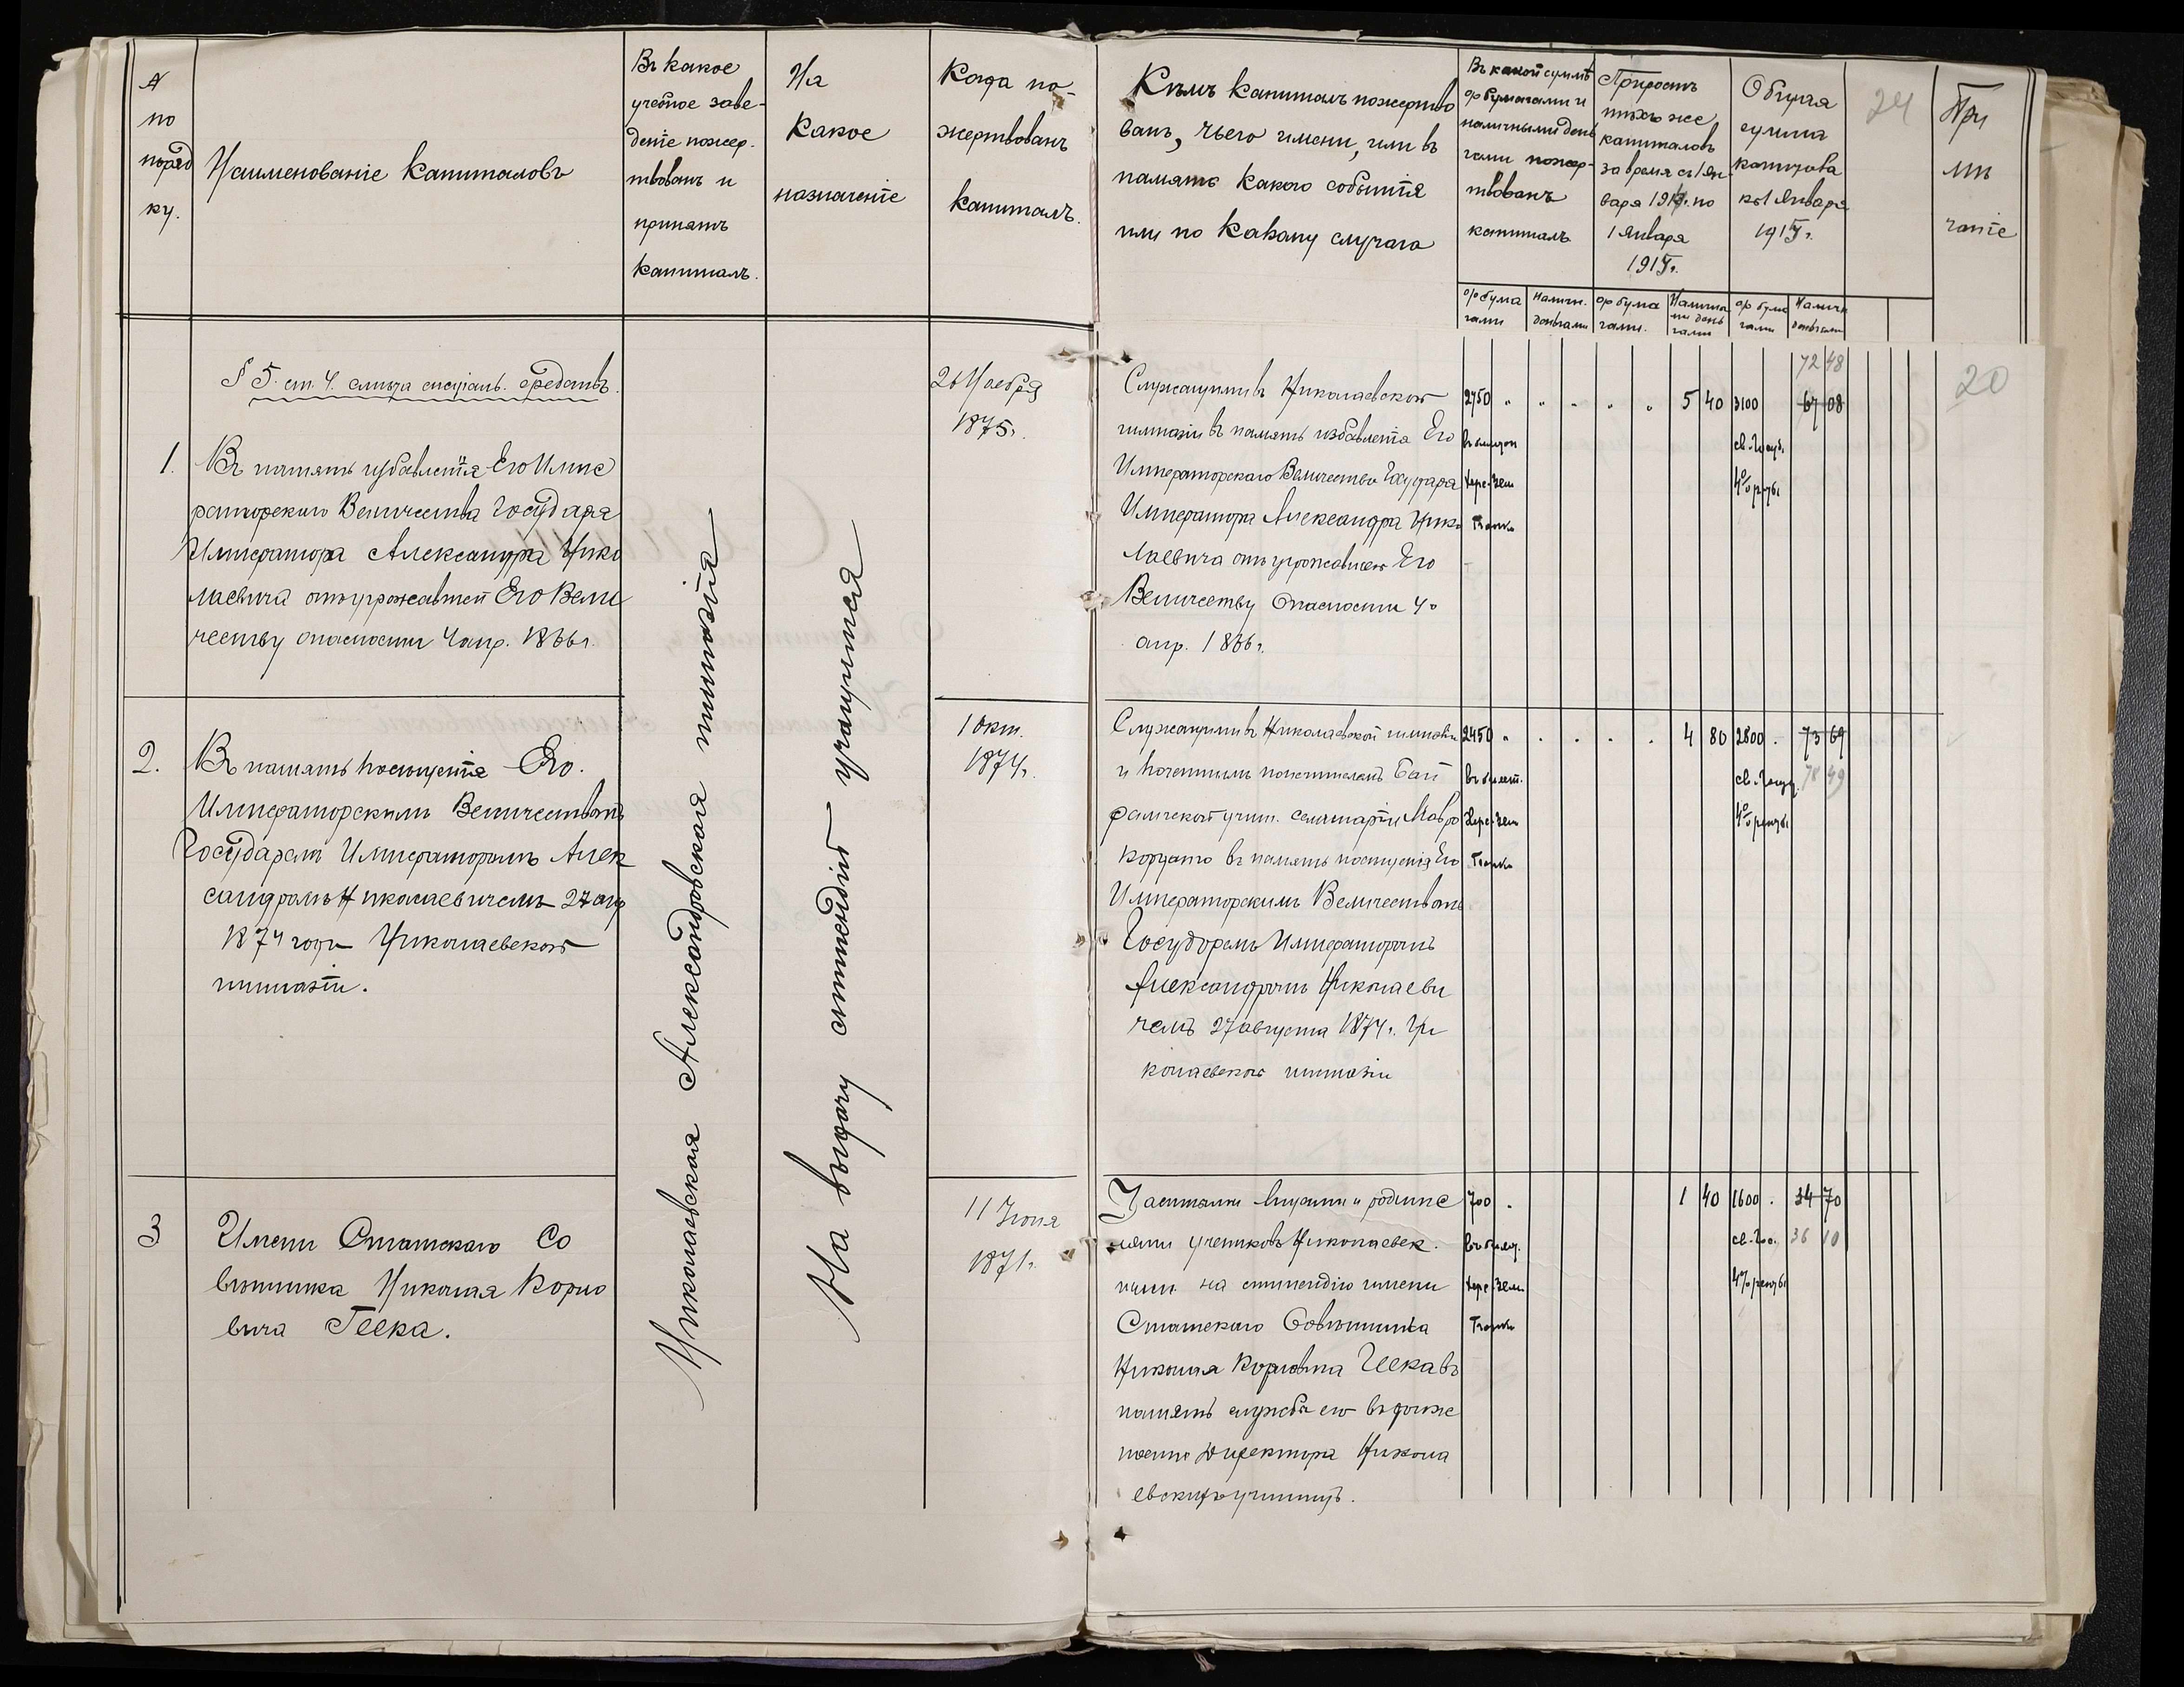 №
по
поряд
ку.
Наименованіе капиталовъ
Въ какое
учебное заве-
деніе пожер-
твованъ и
принятъ
капиталъ.
На
какое
назначеніе
Когда по-
жертвованъ
капиталъ.
Кѣмъ капиталъ пожертво
ванъ, чьего имени, или въ
память какого событія
или по какому случаю
Въ какой суммѣ
% бумагами и
наличными день
гами пожер-
твованъ
капиталъ
Приростъ
тѣхъ же
капиталовъ
за время съ 1 Ян
варя 191 г. по
1 Января
191 г.
Общая
сумма
капитала
къ 1 Января
191 г.
24
При
мѣ
чаніе
% бума
гами
Наличн.
деньгами
% бума
гами.
Наличны
ми день
гами
% бума
гами
Наличн
деньгами
§ 5. ст. 4. смѣта спеціальн. средствъ.
1.
Въ память избавленія Его Импе
раторскаго Величества Государя
Императора Александра Нико
лаевича отъ угрожавшей Его Вели
честву опасности 4 апр. 1866 г.
Николаевская Александровская гимназія
На выдачу стипендій учащимся
26 Ноября
1875 г.
Служащими въ Николаевской
гимназіи въ память избавленія Его
Императорскаго Величества Государя
Императора Александра Нико
лаевича отъ угрожавшей Его
Величеству опасности 4 о
апр. 1866 г.
2750 " " " " " 5 40 3100 67 08
72 48
Хер. Зем
Банка
св. Госуд.
4% ренты
20
2.
Въ память посѣщенія Его
Императорскимъ Величествомъ
Государемъ Императоромъ Алек
сандромъ Николаевичемъ 27 авг
1874 года Николаевской
гимназіи.
1 окт.
1874 г.
Служащими въ Николаевской гимназіи
и почетнымъ попечителемъ Бай
рамчской учит. семинаріи Мавро
кордато въ память посѣщенія Его
Императорскимъ Величествомъ
Государемъ Императоромъ
Александромъ Николаеви
чемъ 27 августа 1874 г. Ни
колаевской гимназіи
2450 " . . . . 4 80 2800 . 73 69
78 49
въ билет.
Хер. Зем
Банка
св. Госуд.
4% ренты
3
Имени Статскаго Со
вѣтника Николая Карло
вича Геека.
11 Іюня
1871 г.
Частными лицами и родите
лями учениковъ Николаевск.
гимн. на стипендію имени
Статскаго Совѣтника
Николая Карловича Геека въ
память службы его въ долж
ности Директора Никола
евскихъ училищъ.
700 . 1 40 1600 . 34 70
36 10
въ билет.
Хер. Зем
Банка
св. Гос.
4% ренты